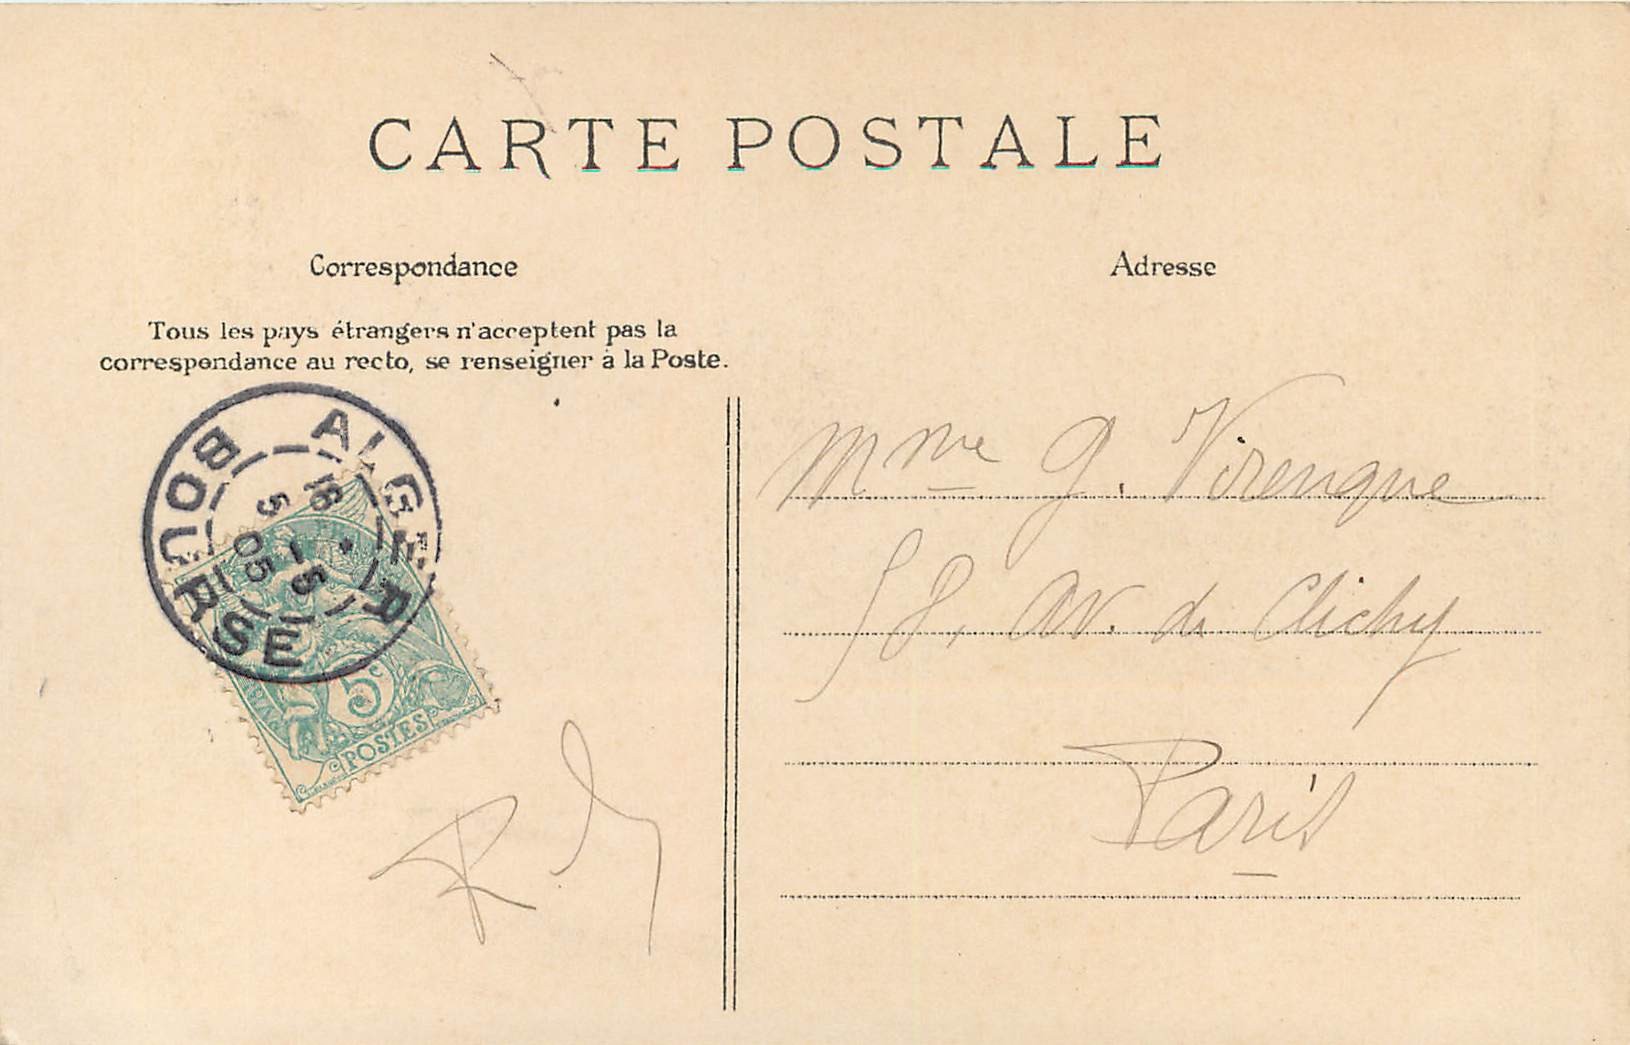 CARTE POSTALE
Correspondance
Tous les pays étrangers n'acceptent pas la
correspondance au recto, se renseigner à la Poste.
ALGER BOURSE
16 * 
5 - 5
05
5c
POSTES
Adresse
Mme G. Virenque
58, Av. de Clichy
Paris